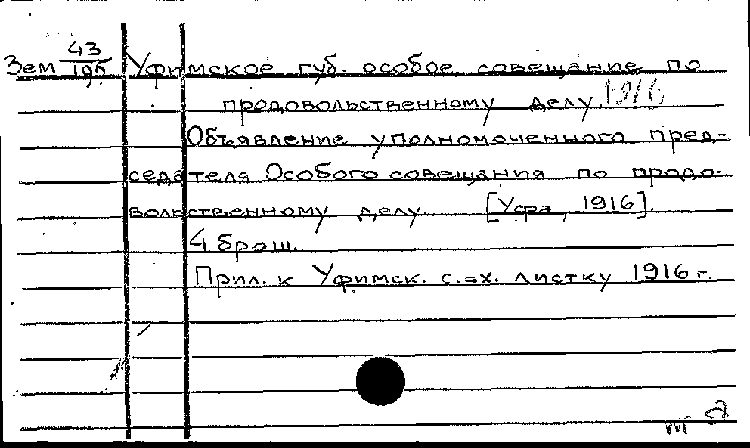 Зем 43/195 Уфимское губ. особое совещание по
продовольственному делу. 1916
Объявление уполномоченного пред-
седателя Особого совещания по продо-
вольственному делу. [Уфа, 1916]
4 брош.
Прил. к Уфимск. с.-х. листку 1916 г.